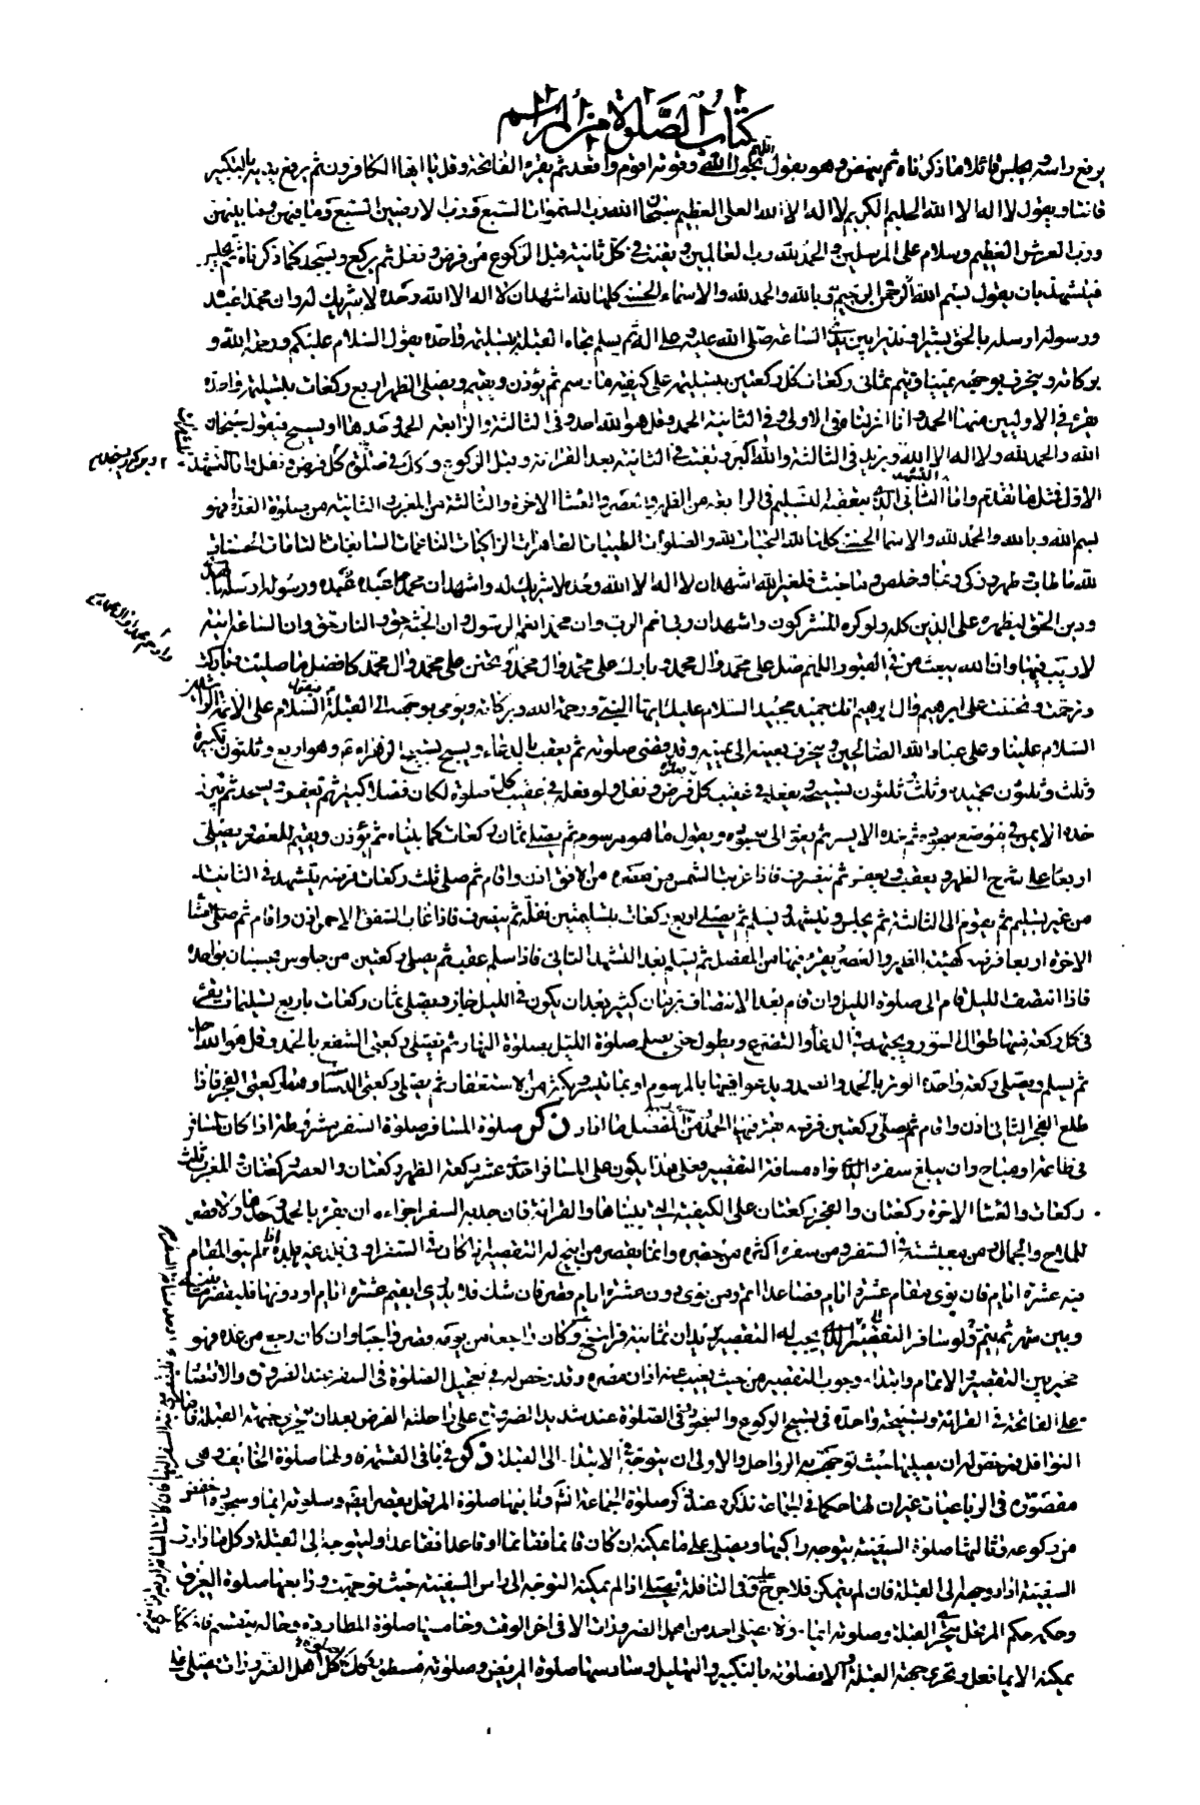 كتاب الصلوة من المراسم
يرفع راسه يجلس قائلا ما ذكرناه ثم ينهض وهو يقول بحول الله وقوته اقوم واقعد ثم يقرء الفاتحة وقل يا ايها الكافرون ثم يرفع يديه بالتكبير
قانتا ويقول لا اله الا الله الحليم الكريم لا اله الا الله العلى العظيم سبحان الله رب السموات السبع ورب الارضين السبع وما فيهن وما بينهن
ورب العرش العظيم وسلام على المرسلين والحمد لله رب العالمين ويقنت فى كل ثانية قبل الركوع من فرض ونفل ثم يركع ويسجد كما ذكرناه ثم يجلس
فيتشهد بان يقول بسم الله الرحمن الرحيم وبالله والحمد لله والاسماء الحسنى كلها لله اشهد ان لا اله الا الله وحده لا شريك له وان محمدا عبده
ورسوله ارسله بالحق بشيرا ونذيرا بين يدى الساعة صلى الله عليه وعلى اله ثم يسلم تجاه القبلة تسليمة واحدة يقول السلام عليكم ورحمة الله و
بركاته وينحرف بوجهه يمينا ويتم ثمانى ركعات كل ركعتين بتسليمة على كيفية ما رسم ثم يؤذن ويقيم ويصلى الظهر اربع ركعات بتسليمة واحدة
يقرء فى الاوليين منهما الحمد وانا انزلناه فى الاولى وفى الثانية الحمد وقل هو الله احد وفى الثالثة والرابعة الحمد وحدها او يسبح فيقول سبحان
الله والحمد لله ولا اله الا الله ويزيد فى الثالثة والله اكبر ويقنت فى الثانية بعد القرائة وقبل الركوع وكل فى صلوة كل فرض ونفل واما التشهد
الاول فمثل ما تقدم واما الثانى الذى يتعقبه التسليم فى الرابعة من الظهر والعصر والعشا الاخرة والثالثة من المغرب والثانية من صلوة الغداة فهو
بسم الله وبالله والحمد لله والاسما الحسنى كلها لله التحيات لله والصلوات الطيبات الطاهرات الزاكيات الناعمات السابغات التامات الحسنات
لله ما طاب وطهر وزكى ونما وخلص وما خبث فلغير الله اشهد ان لا اله الا الله وحده لا شريك له واشهد ان محمدا عبده ورسوله ارسله بالهدى
ودين الحق ليظهره على الدين كله ولو كره المشركون واشهد ان ربى نعم الرب وان محمدا نعم الرسول وان الجنة حق والنار حق وان الساعة اتية
لا ريب فيها وان الله يبعث من فى القبور اللهم صل على محمد وال محمد وبارك على محمد وال محمد وتحنن على محمد وال محمد كافضل ما صليت وباركت
وترحمت وتحننت على ابرهيم وال ابرهيم انك حميد مجيد السلام عليك ايها النبى ورحمة الله وبركاته ويومى بوجهه الى القبلة فيقول السلام على الائمة الراشدين
السلام علينا وعلى عباد الله الصالحين وينحرف بعينه الى يمينه وقد قضى صلوته ثم يعقب بالدعاء ويسبح تسبيح الزهراء وهو اربع وثلثون تكبيرة
وثلث وثلثون تحميدة وثلث وثلثون تسبيحة يفعله فى عقيب كل فرض ونفل ولو فعله فى عقيب كل صلوة لكان فضلا كبيرا ثم يعفر ويسجد ثم يضع
خده الايمن فى موضع سجوده ثم خده الايسر ثم يعود الى سجوده ويقول ما هو مرسوم ثم يصلى ثمان ركعات كما بيناه ثم يؤذن ويقيم للعصر ويصلى
اربعا على شرح الظهر ويعقب ويعفر ثم ينصرف فاذا غربت الشمس من الافق اذن واقام ثم صلى ثلث ركعات فريضة يتشهد فى الثانية
من غير تسليم ثم يقوم الى الثالثة ثم يجلس ويتشهد ويسلم ثم يصلى اربع ركعات بتسليمتين نفلا ثم ينصرف فاذا غاب الشفق الاحمر اذن واقام ثم صلى العشا
الاخرة اربعا فرضه كهيئة الظهر والعصر يقرء فيها من المفصل ثم يسلم بعد التشهد الثانى فاذا سلم عقب ثم يصلى ركعتين من جلوس تحسبان بواحدة
فاذا انتصف الليل قام الى صلوة الليل وان قام بعد الانتصاف بزمان كثير بعد ان يكون فى الليل جاز ويصلى ثمان ركعات باربع تسليمات يقرء
فى كل ركعة منها طوال السور ويجتهد فى الدعا والتضرع ويطول حتى يصل صلوة الليل بصلوة النهار ثم يصلى ركعتى الشفع بالحمد وقل هو الله احد
ثم يسلم ويصلى ركعة واحدة الوتر بالحمد والصمد ويدعوا فيها بالمرسوم او بما تيسر ويكثر من الاستغفار ثم يصلى ركعتى الدساسة وهما ركعتى الفجر فاذا
طلع الفجر الثانى اذن واقام ثم صلى ركعتين فرضه يقرء فيها الحمد من المفصل ما اراد ذكر صلوة المسافر صلوة السفر بشروطه اذا كان السفر
فى طاعة او مباح وان يبلغ سفره الذى نواه مسافة التقصير فعلى هذا يكون على المسافر احدى عشرة ركعة الظهر ركعتان والعصر ركعتان والمغرب ثلث
ركعات والعشا الاخرة ركعتان والفجر ركعتان على الكيفية التى بيناها والقرائة فان جد به السفر اجزاءه ان يقرء بالحمد وحدها ولا قصر
للملاح والجمال ومن معيشته فى السفر ومن سفره اكثر من حضره وانما يقصر من ابيح له التقصير اذا كان فى السفر او فى بلد غير بلده اذا لم ينو المقام
فيه عشرة ايام فان نوى مقام عشرة ايام فصاعدا اتم ومن نوى دون عشرة ايام قصر فان شك فلا يدرى ايقيم عشرة ايام او دونها فليقصر ما بينه
وبين شهر ثم يتم ولو سافر السفر الذى يجب له التقصير بريدان ثمانية فراسخ وكان راجعا من يومه قصر واجبا وان كان رجع من غده فهو
مخير بين التقصير والاتمام وابتداء وجوب التقصير من حيث يغيب عنه اذان مصره وقد رخص له فى تعجيل الصلوة فى السفر عند الضرورة والاقتصار
على الفاتحة فى القرائة وتسبيحة واحدة فى تسبيح الركوع والسجود وفى الصلوة عند شديد الضرورة على راحلته الفرض بعد ان يتحرى جهة القبلة فاما
النوافل فيرخص له ان يصليها حيث توجهت به الرواحل والاولى ان يتوجه فى الابتداء الى القبلة ذكر فى باقى القسمة واما صلوة الخائف وهى
مقصورة فى الرباعيات غير ان لها حكما فى الجماعة نذكره عند ذكر صلوة الجماعة انشا وثانيها صلوة المرتحل يقصر ايضا وصلوته ايما وسجوده اخفض
من ركوعه وثالثها صلوة السفينة يتوجه راكبها ويصلى على ما يمكنه ان كان قائما فقائما او قاعدا فقاعدا وليتوجه الى القبلة وكل ما دارت
السفينة ادار وجهه الى القبلة فان لم يتمكن فلا حرج عليه وفى النافلة يصلى اذا لم يمكنه التوجه الى راس السفينة حيث توجهت ورابعها صلوة الغرق
وحكمه حكم المرتحل يتحرى القبلة وصلوته ايماء ولا يصلى احد من اهل الضرورات الا فى اخر الوقت وخامسها صلوة المطاردة وحاله ينقسم فان كان
يمكنه الايما فعل وتحرى جهة القبلة والا فصلوته بالتكبير والتهليل وسادسها صلوة المريض وصلوته قسط وكل اهل الضرورات يصلى على